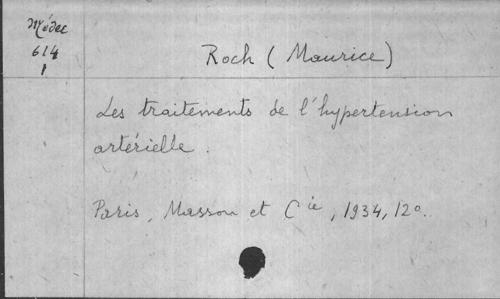 Médec
614
1
Roch (Maurice)
Les traitements de l'hypertension
artérielle.
Paris, Masson et Cie, 1934, 12o.